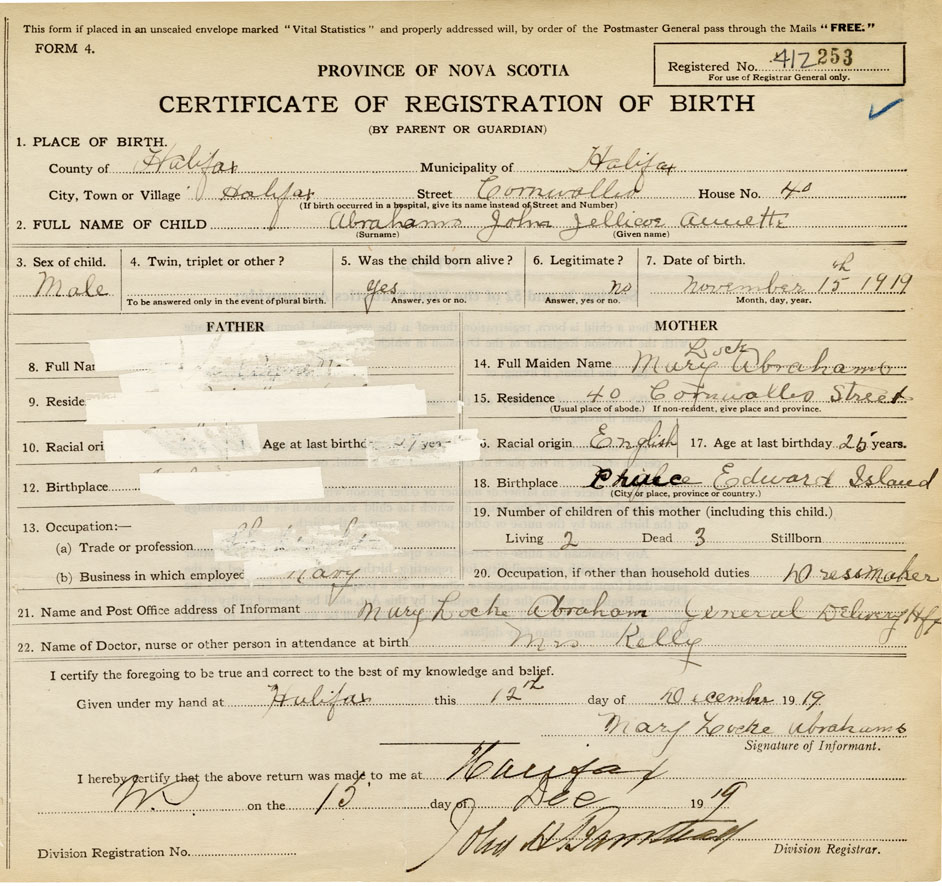 This form if placed in an unsealed envelope marked "Vital Statistics" and properly addressed will, by order of the Postmaster General pass through the Mails "FREE."
FORM 4.
Registered No. 412 253
For use of Registrar General only.
PROVINCE OF NOVA SCOTIA
CERTIFICATE OF REGISTRATION OF BIRTH
(BY PARENT OR GUARDIAN)
1. PLACE OF BIRTH.
County of Halifax Municipality of Halifax
City, Town or Village Halifax Street Cornwallis House No. 40
(If birth occurred in a hospital, give its name instead of Street and Number)
2. FULL NAME OF CHILD Abrahams John Jellicoe Annette
(Surname) (Given name)
3. Sex of child. 4. Twin, triplet or other? 5. Was the child born alive? 6. Legitimate? 7. Date of birth.
Male yes no November 15th 1919
To be answered only in the event of plural birth. Answer, yes or no. Answer, yes or no. Month, day, year.
FATHER MOTHER
8. Full Na 14. Full Maiden Name Mary Locke Abrahams
9. Reside 15. Residence 40 Cornwallis Street
(Usual place of abode.) If non-resident, give place and province.
10. Racial ori Age at last birthd years 16. Racial origin English 17. Age at last birthday 25 years.
12. Birthplace 18. Birthplace Prince Edward Island
(City or place, province or country.)
13. Occupation:— 19. Number of children of this mother (including this child.)
(a) Trade or profession Living 2 Dead 3 Stillborn
(b) Business in which employed Navy 20. Occupation, if other than household duties Dressmaker
21. Name and Post Office address of Informant Mary Locke Abraham General Delivery Hfx
22. Name of Doctor, nurse or other person in attendance at birth Mrs Kelly
I certify the foregoing to be true and correct to the best of my knowledge and belief.
Given under my hand at Halifax this 12th day of December 1919
Mary Locke Abrahams
Signature of Informant.
I hereby certify that the above return was made to me at Halifax
on the 15 day of Dec 1919
John H
Division Registration No. Division Registrar.